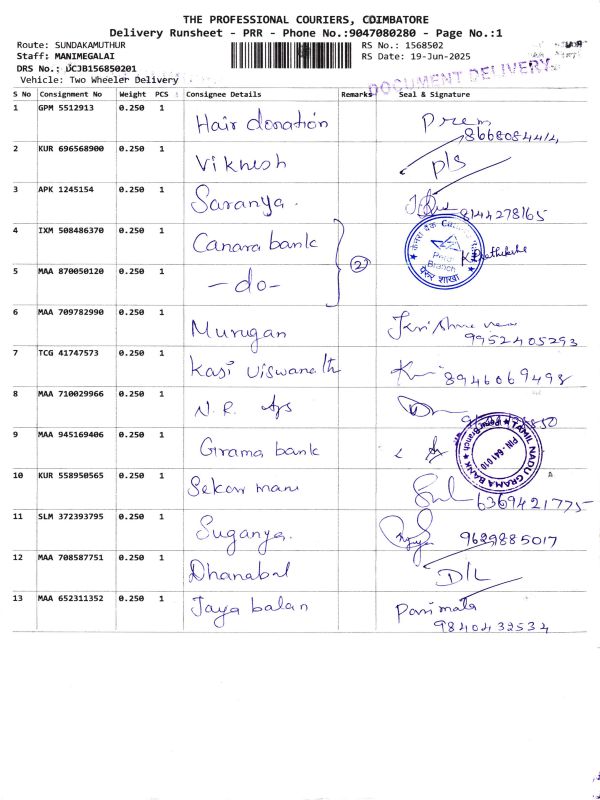 THE PROFESSIONAL COURIERS, COIMBATORE
Delivery Runsheet - PRR - Phone No.:9047080280 - Page No.:1
Route: SUNDAKAMUTHUR RS No.: 1568502
Staff: MANIMEGALAI RS Date: 19-Jun-2025
DRS No.: UCJB156850201
Vehicle: Two Wheeler Delivery
DOCUMENT DELIVERY
S No Consignment No Weight PCS Consignee Details Remarks Seal & Signature
1 GPM 5512913 0.250 1 Hair donation Prem
8668084414
2 KUR 696568900 0.250 1 Viknesh P/S
3 APK 1245154 0.250 1 Saranya. 8144278165
4 IXM 508486370 0.250 1 Canara bank
5 MAA 870050120 0.250 1 -do- (2)
केनरा बैंक
Branch
पेरूर शाखा
6 MAA 709782990 0.250 1 Murugan
9952405293
7 TCG 41747573 0.250 1 Kasi Viswanath 8946069498
8 MAA 710029966 0.250 1 N.R.
9 MAA 945169406 0.250 1 Grama bank
TAMIL NADU GRAMA BANK
PIN - 641 010
10 KUR 558950565 0.250 1 Sekar mani
6369421775
11 SLM 372393795 0.250 1 Suganya. 9629885017
12 MAA 708587751 0.250 1 Dhanabal D/L
13 MAA 652311352 0.250 1 Jaya balan Parimala
9840432534